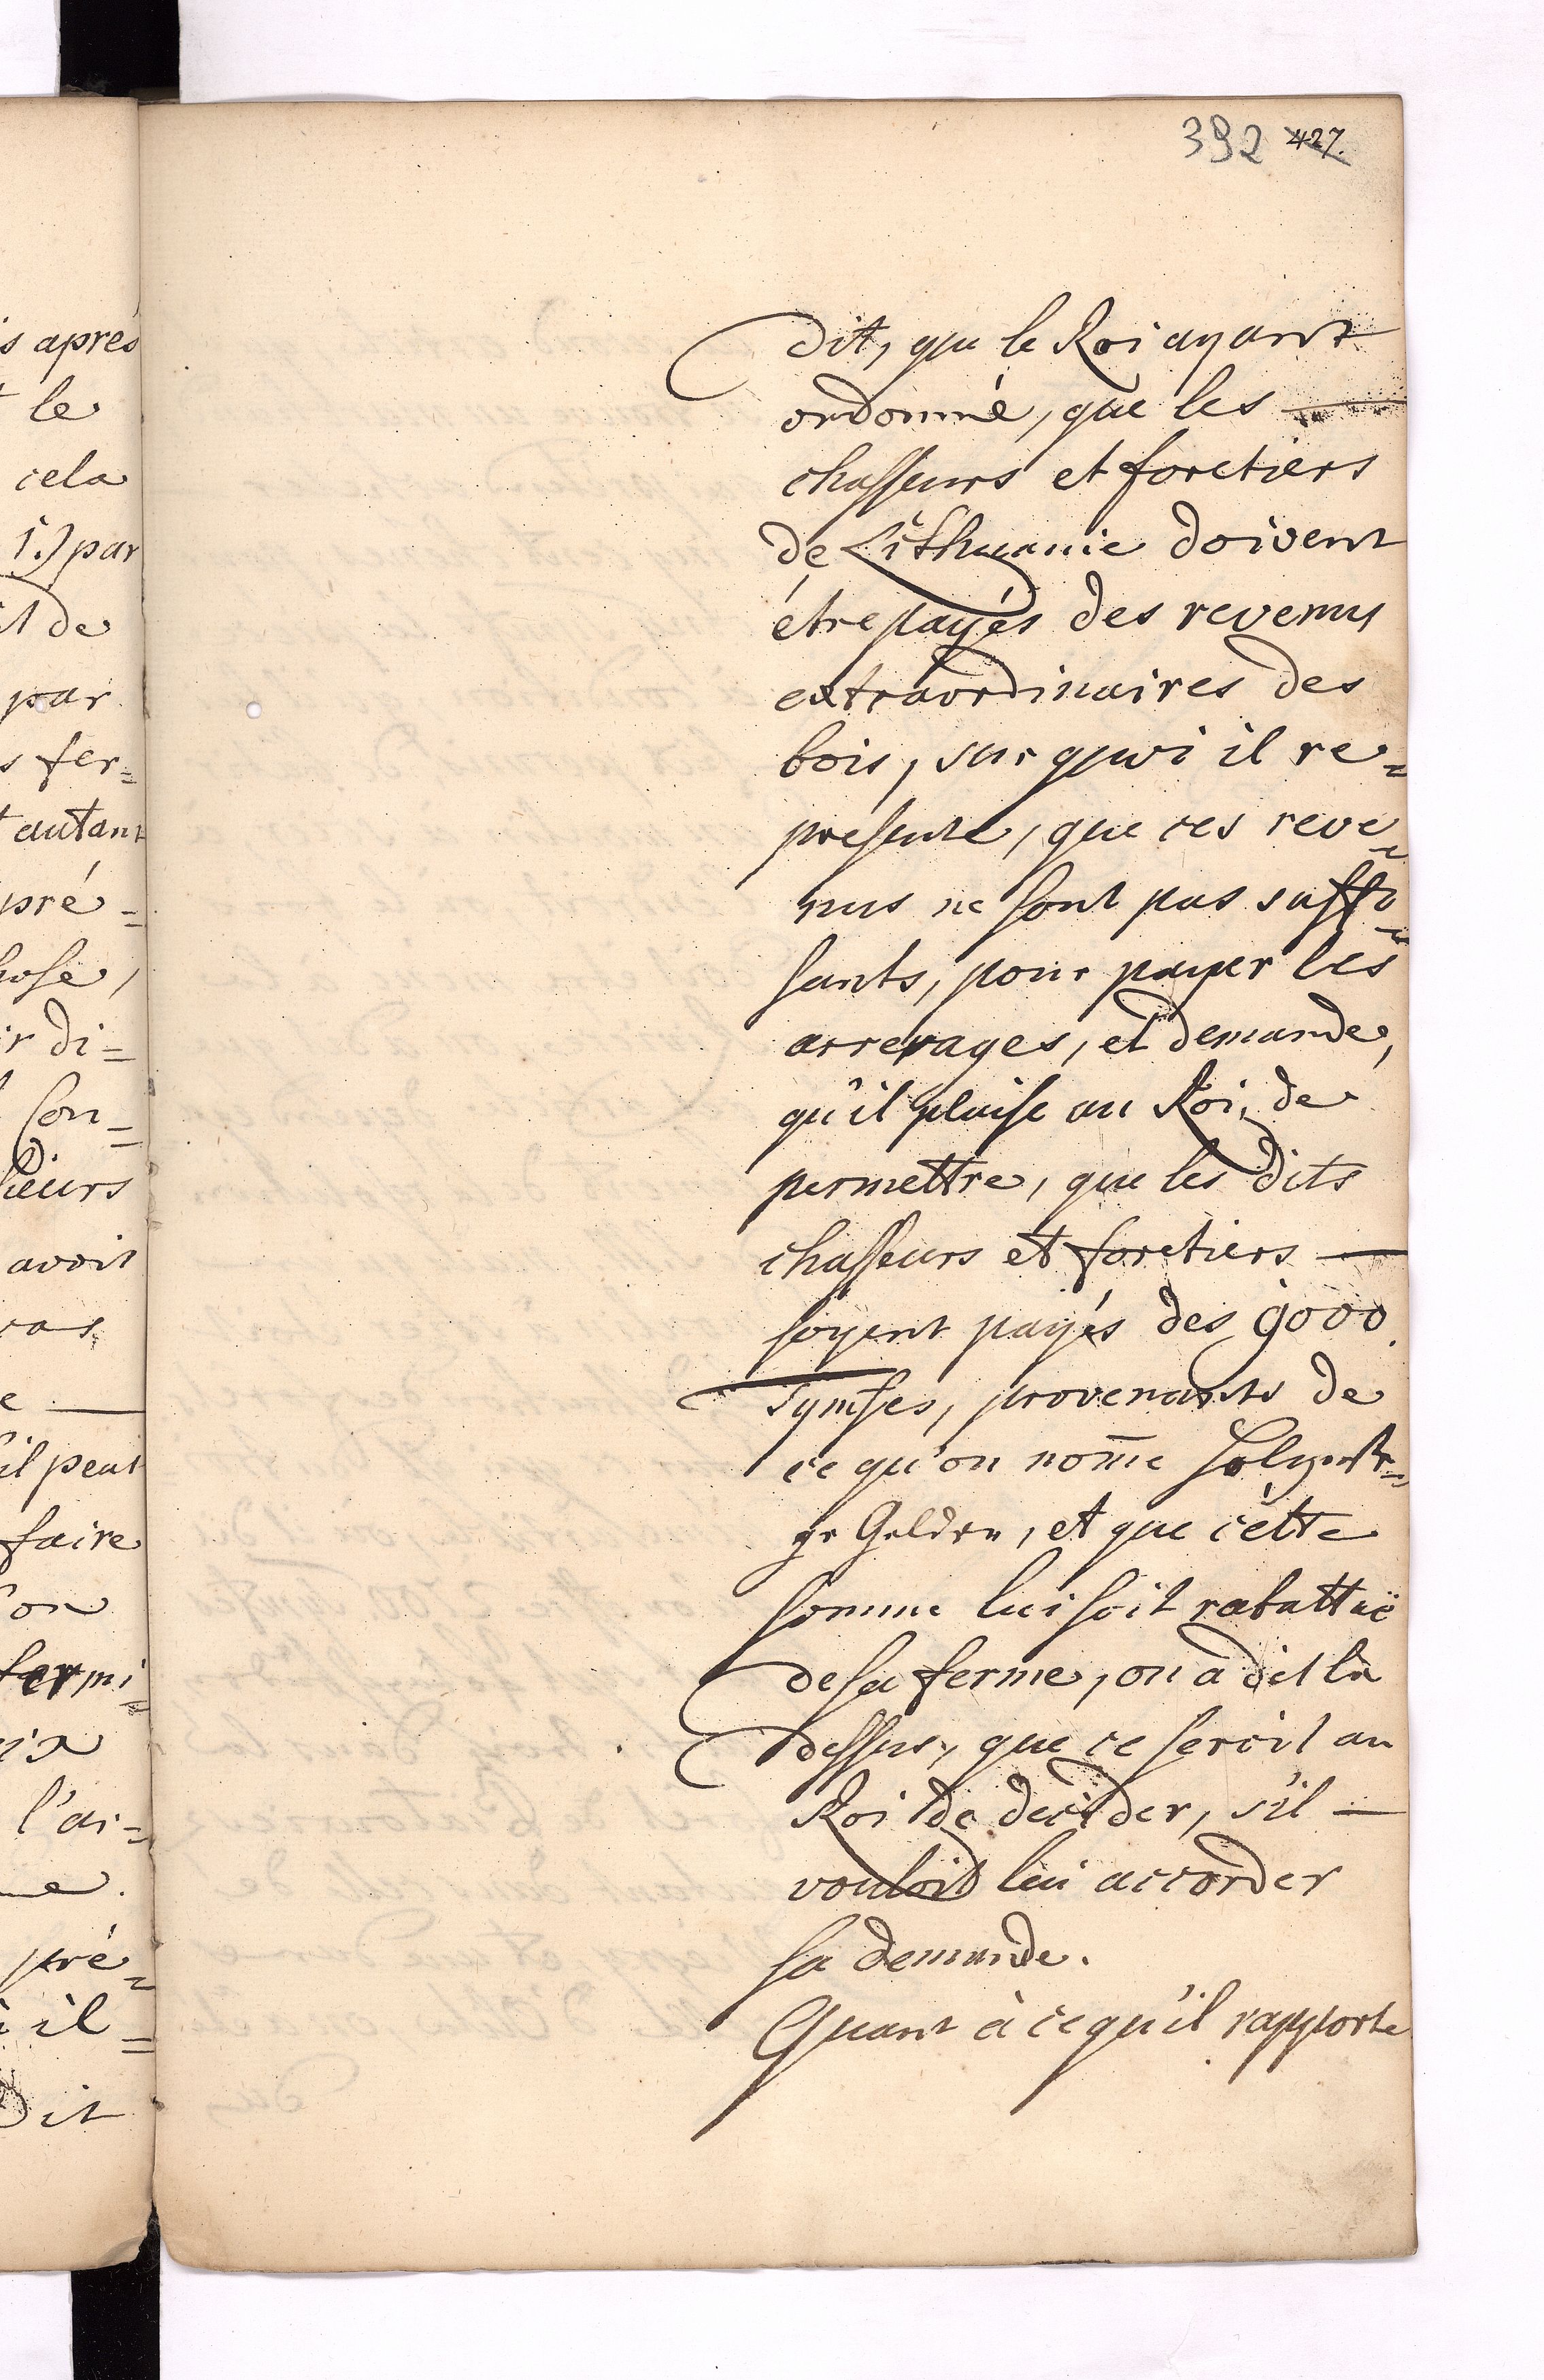 s après
le
cela
1.) par
il de
par
s fer=
t autant
pré=
hose,
ir di=
Con=
sieurs
avoit
cas
e —
'il peut
faire
l'on
fermi=
l'ai=
pré=
il=
Dit
392 427.
dit, que le Roi ayant
ordonné, que les —
chasseurs et foretiers
de Lithuanie doivent
étre payés des revenus
extraordinaires des
bois, sur quoi il re=
presente, que ces reve=
nus ne sont pas suffi=
sants, pour payer les
arrerages, et demande,
qu'il plaise au Roi, de
permettre, que les dits
chasseurs et foretiers —
soyent payés des 9000
Tymfes, provenants de
ce qu'on nom̄e
Gelder, et que cette
somme lui soit rabattüe
de sa ferme, on a dit là
dessus, que ce seroit au
Roi de decider, s'il —
vouloit lui accorder
sa demande.
Quant à ce qu'il rapporte